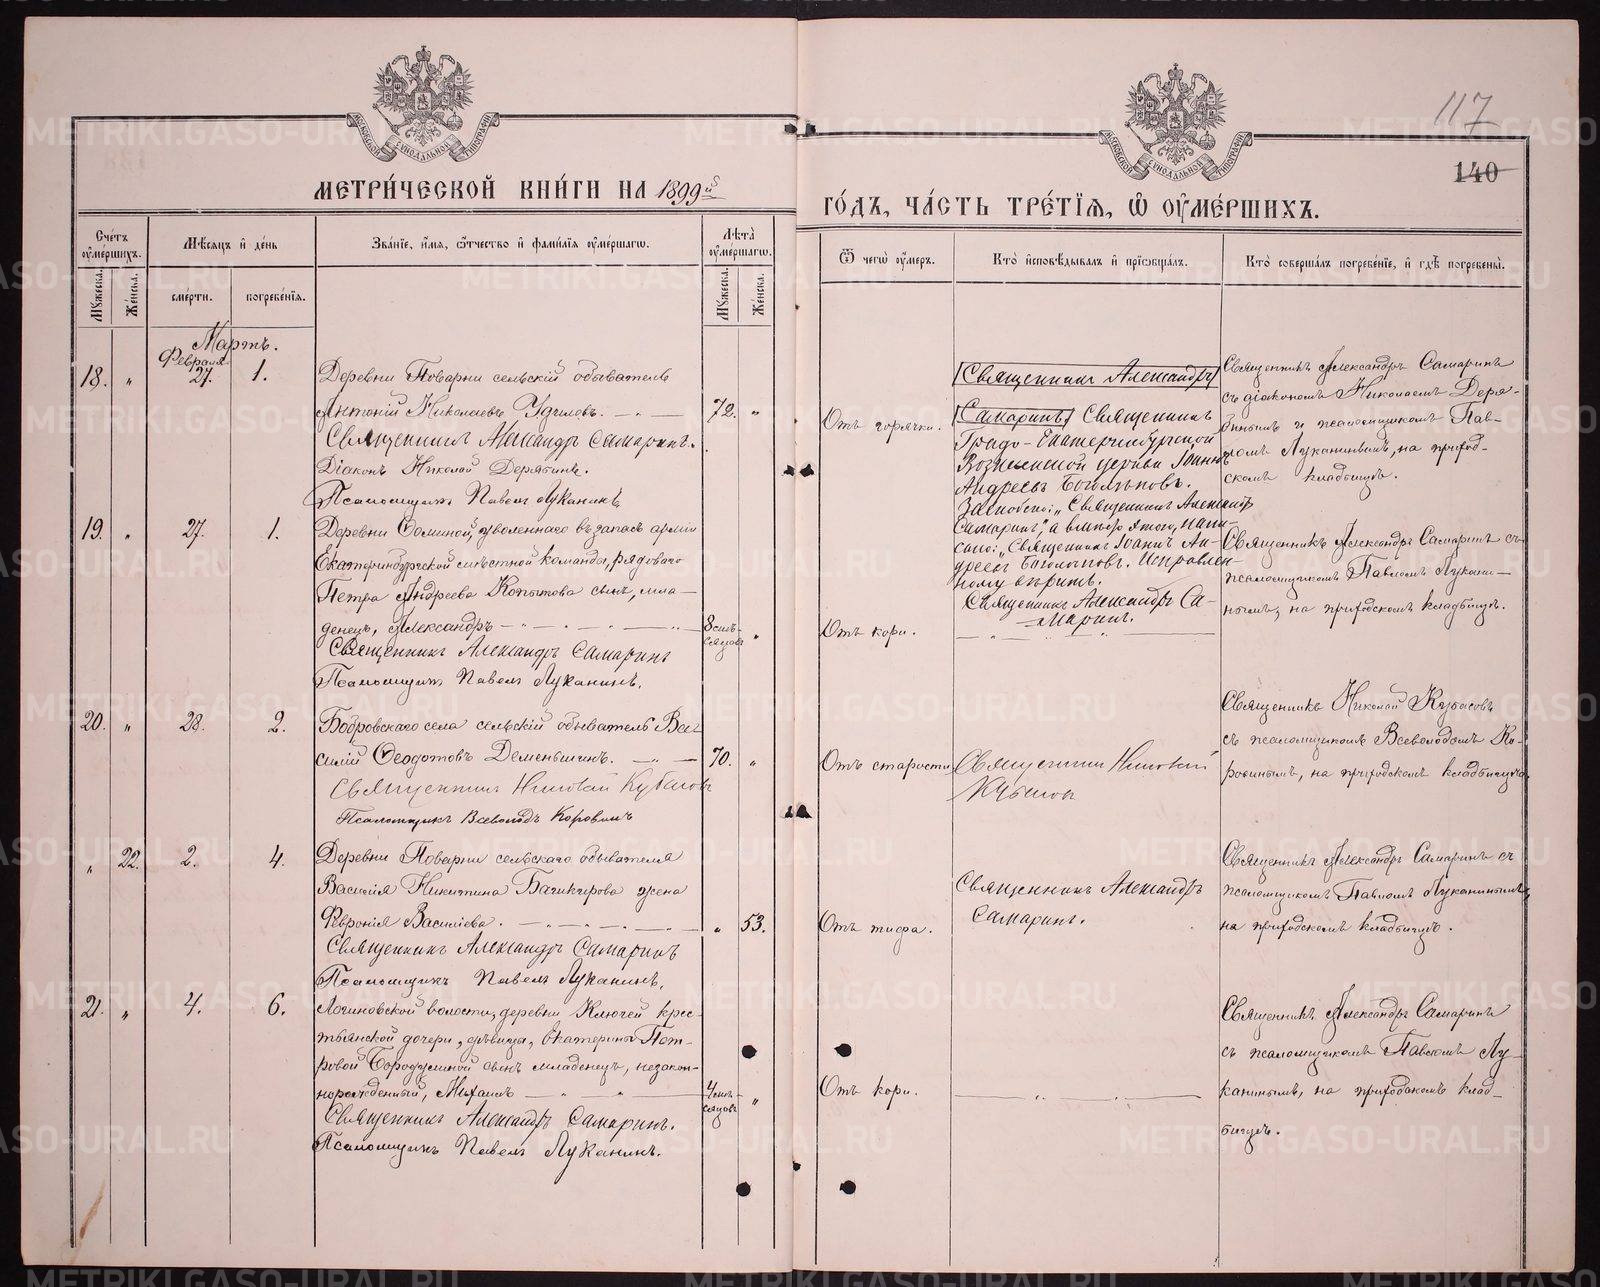 117
140
МЕТРИ́ЧЕСКОЙ КНИ́ГИ НА 1899й
ГО́ДЪ, ЧА́СТЬ ТРЕ́ТІѦ, Ѡ ОУМЕ́РШИХЪ.
Сче́тъ оуме́ршихъ.
Мѣсѧцъ и де́нь
Зва́нїе, и́мѧ, ѻ́тчество и фамилїѧ оуме́ршагѡ.
Лѣта̀ оуме́ршагѡ.
Ѿ чегѡ̀ оу́меръ.
Кто̀ и҆сповѣ́дывалъ и҆ прїѡбща́лъ.
Кто̀ соверша́лъ погребе́нїе, и҆ гдѣ̀ погребены̀.
Мꙋ́жеска. Же́нска.
сме́рти. погребе́нїѧ.
Мꙋ́жеска. Же́нска.
Мартъ.
Февраля
18. " 27. 1.
Деревни Поварни сельскій обыватель
Антоній Николаевъ 72. "
Священникъ Александръ Самаринъ.
Діаконъ Николай Дерябинъ.
Псаломщикъ Павелъ Луканинъ
Отъ горячки.
Священникъ Александръ
Самаринъ Священникъ
Градо-Екатеринбургской
Вознесенской церкви Іоаннъ
Андреевъ Боголѣповъ.
Зачеркнуто: "Священникъ Александръ
Самаринъ", а вмѣсто этого, напи-
сано: "Священникъ Іоаннъ Ан-
дреевъ Боголѣповъ. Исправлен-
ному вѣрить.
Священникъ Александръ Са-
маринъ.
Священникъ Александръ Самаринъ
съ діакономъ Николаемъ Деря-
бинымъ и псаломщикомъ Пав-
ломъ Луканинымъ, на приход-
скомъ кладбищѣ.
19. " 27. 1.
Деревни Ѳоминой, уволеннаго въ запасъ арміи
Екатеринбургской мѣстной команды, рядового
Петра Андреева Копытова сынъ, мла-
денецъ, Александръ 8 мѣ-сяцовъ "
Священникъ Александръ Самаринъ
Псаломщикъ Павелъ Луканинъ.
Отъ кори.
Священникъ Александръ Самаринъ съ
псаломщикомъ Павломъ Лукани-
нымъ, на приходскомъ кладбищѣ.
20. " 28. 2.
Бобровскаго села сельскій обыватель Ва-
силій Ѳеодотовъ Деменьшинъ. 70. "
Священникъ Николай Кубасовъ
Псаломщикъ Всеволодъ Коровинъ
Отъ старости
Священникъ Николай
Кубасовъ
Священникъ Николай Кубасовъ
съ псаломщикомъ Всеволодомъ Ко-
ровинымъ, на приходскомъ кладбищѣ
" 22. 2. 4.
Деревни Поварни сельскаго обывателя
Василія Никитина жена
Февронія Васильева. " 53.
Священникъ Александръ Самаринъ
Псаломщикъ Павелъ Луканинъ.
Отъ тифа.
Священникъ Александръ
Самаринъ.
Священникъ Александръ Самаринъ съ
псаломщикомъ Павломъ Луканинымъ,
на приходскомъ кладбищѣ.
21. " 4. 6.
Логиновской волости, деревни Ключей крес-
тьянской дочери, дѣвицы, Екатерины Пет-
ровой Бородулиной сынъ младенецъ, незакон-
норожденный, Михаилъ 4 мѣ-сяцовъ "
Священникъ Александръ Самаринъ.
Псаломщикъ Павелъ Луканинъ.
Отъ кори.
Священникъ Александръ Самаринъ
съ псаломщикомъ Павломъ Лу-
канинымъ, на приходскомъ клад-
бищѣ.